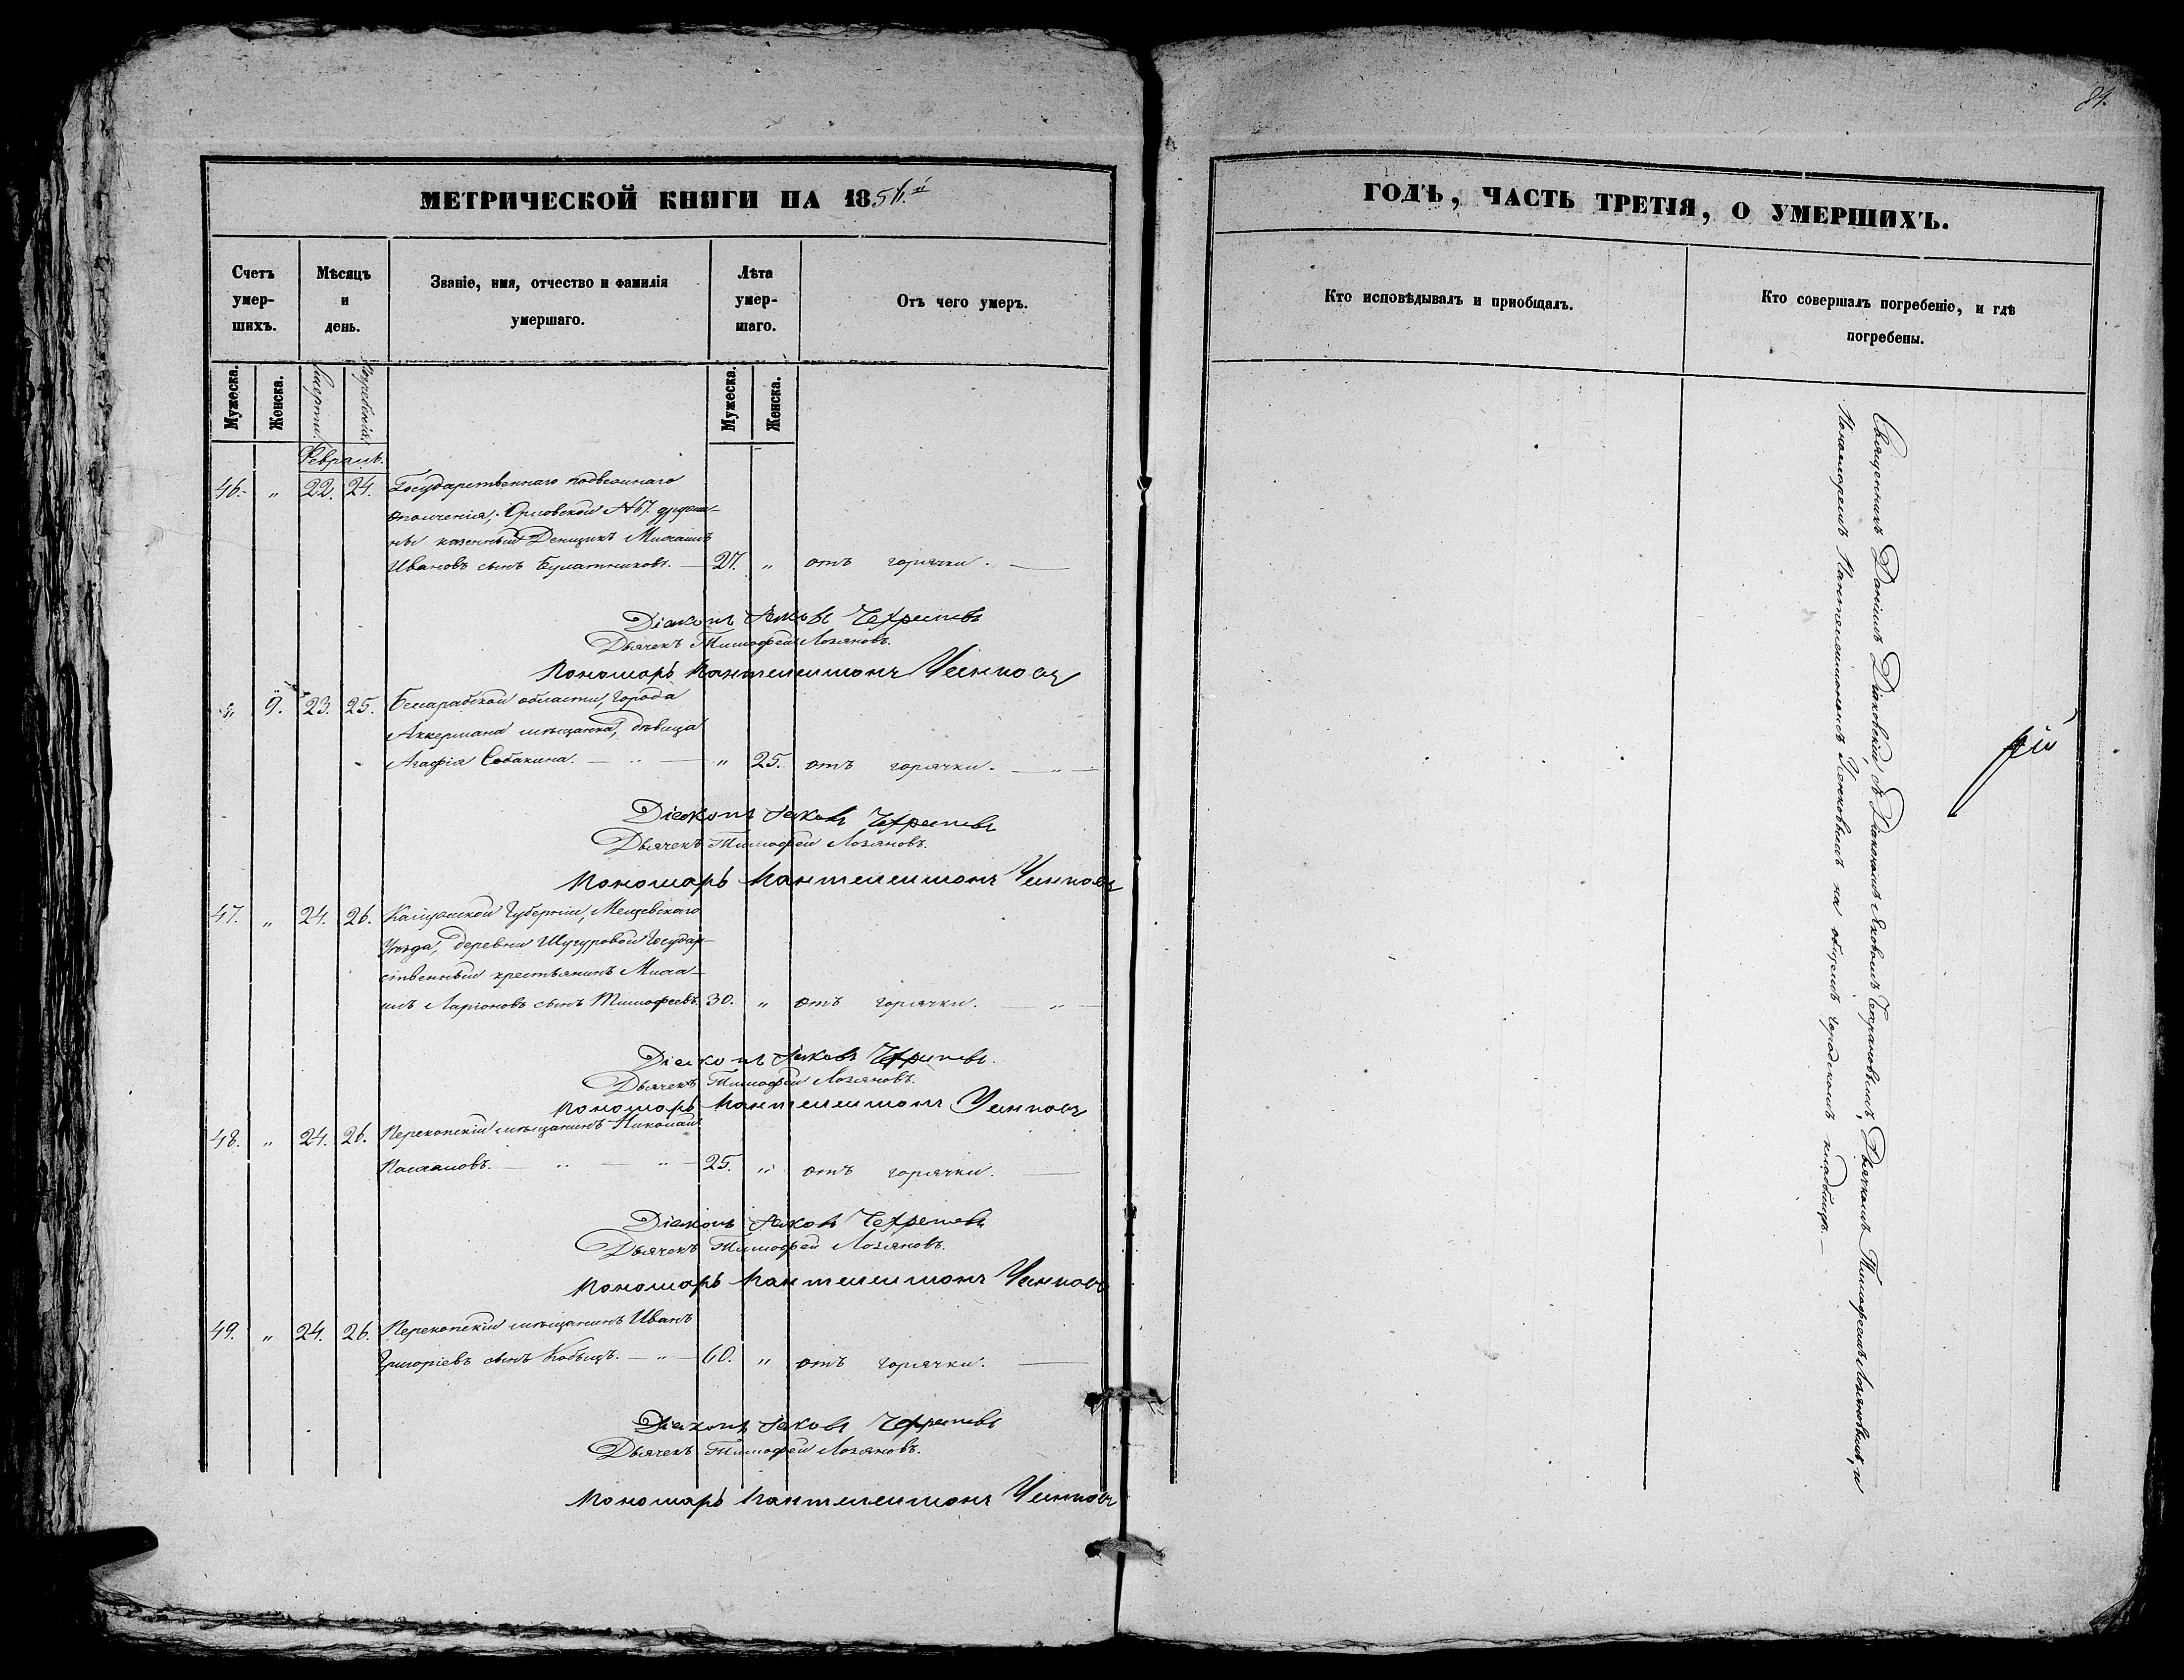 84.
МЕТРИЧЕСКОЙ КНИГИ НА 1856.й
ГОДЪ, ЧАСТЬ ТРЕТІЯ, О УМЕРШИХЪ.
Счетъ умер-шихъ.
Мѣсяцъ и день.
Званіе, имя, отчество и фамилія умершаго.
Лѣта умер-шаго.
Отъ чего умеръ.
Кто исповѣдывалъ и пріобщалъ.
Кто совершалъ погребеніе, и гдѣ погребены.
Мужеска.
Женска.
Смерти.
Погребенія.
Мужеска.
Женска.
Февраль.
46. „ 22. 24. Государственнаго подвижнаго
ополченія, Орловской №67. дружи-
ны казенный Денщикъ Михаилъ
Ивановъ сынъ Булатниковъ. — 27. „ отъ горячки. —
Діаконъ Іаковъ
Дьячекъ Тимофей Лозяновъ.
Пономарь Пантелеимонъ
„ 9. 23. 25. Бессарабской области, города
Аккермана мѣщанка, дѣвица
Агафія Собакина. — „ — „ 25. отъ горячки. — „ —
Діаконъ Іаковъ
Дьячекъ Тимофей Лозяновъ.
Пономарь Пантелеимонъ
47. „ 24. 26. Калужской Губерніи, Мещовскаго
Уѣзда, деревни Шугуровой Государ-
ственный крестьянинъ Миха-
илъ Ларіоновъ сынъ Тимофеевъ. 30. „ отъ горячки. — „ —
Діаконъ Іаковъ
Дьячекъ Тимофей Лозяновъ.
Пономарь Пантелеимонъ
48. „ 24. 26. Перекопскій мѣщанинъ Николай
— „ — „ — 25. „ отъ горячки. —
Діаконъ Іаковъ
Дьячекъ Тимофей Лозяновъ.
Пономарь Пантелеимонъ
49. „ 24. 26. Перекопскій мѣщанинъ Иванъ
Григоріевъ сынъ Кобыцъ. — „ — 60. „ отъ горячки. —
Діаконъ Іаковъ
Дьячекъ Тимофей Лозяновъ.
Пономарь Пантелеимонъ
Священникъ Даніилъ съ Діакономъ Яковомъ Дьячкомъ Тимофеемъ Лозяновымъ, и
Пономаремъ Пантелеимономъ на общемъ городскомъ кладбищѣ. —